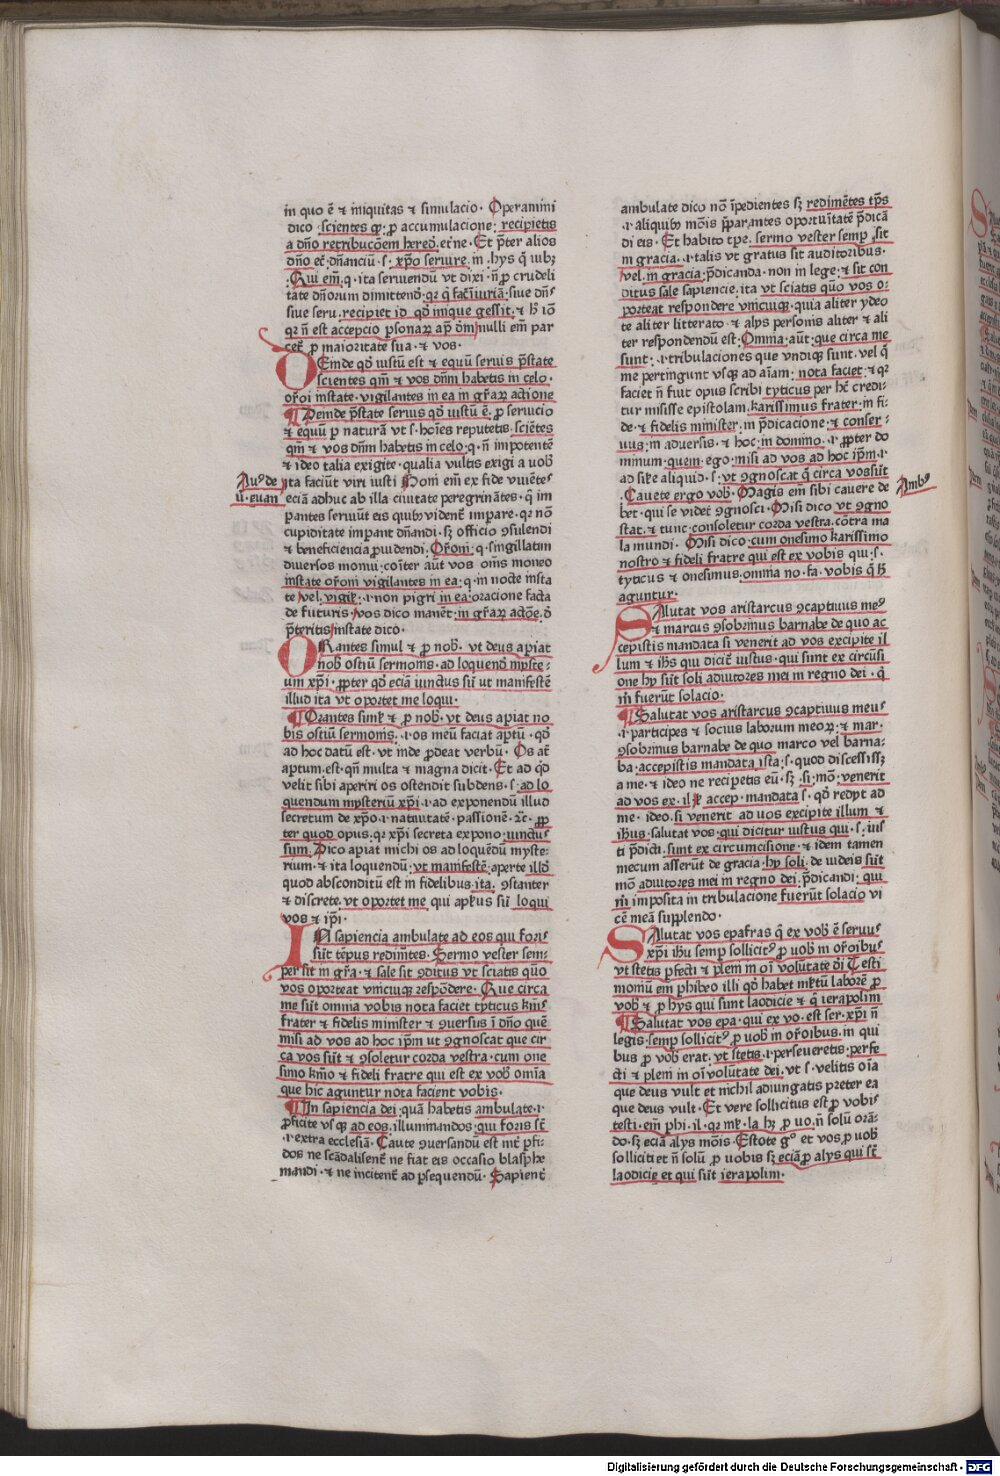 in quo ē ⁊ iniquitas ⁊ simulacio· Operamini
dico ·scientes ꝙ ꝓ accumulacione· recipietis
a dño retribucōem hered· et̾ne· Et p̄ter alios
dño et̾ dñanciū· s· xp̄o seruire in hys q̄ iub⁊
Qui em̄ q· ita seruiendū vt dixi·
tate dñorum dimittend̾ qꝛ q̄ fac̄ iniuriā· siue dñs
siue seru· recipiet id qd̾ inique gessit· ⁊
qꝛ n̄ est accepcio ꝑsonaꝝ apd̾ nulli em̄ par
cet̾ ꝓ maioritate sua· ⁊ vos·
Oeinde qd̾ iustū est ⁊ equū seruis p̄state
scientes qm̄ ⁊ vos dñm habetis in celo·
or̄oni instate· vigilantes in ea in gr̄aꝝ actione
Deinde p̄state seruis qd̾ iustū ē· ꝓ seruicio
⁊ equū ꝓ naturā vt s· hoīes reputetis· sciētes
qm̄ ⁊ vos dñm habetis in celo· q· n̄ impotentē
⁊ ideo talia exigite· qualia vultis exigi a uob̾
ita faciūt viri iusti Nom̄ em̄ ex fide viuētes
Au⁹ de
ū· euan
eciā adhuc ab illa ciuitate peregrinātes· q̄ im
pantes seruiūt eis quib⁹ videnī impare· qꝛ nō
cupiditate impant dñandi· s⁊ officio ꝯsulendi
⁊ beneficiencia ꝓuidendi· Or̄oni· q· singillatim
diuersos monui· coīter aūt vos om̄s moneo
instate or̄oni vigilantes in ea· q· in nocte insta
te vel· vigil⁊· i· non pigri in ea· oracione facta
de futuris· vos dico manent· in gr̄aꝝ actōe· d̾
p̄teritis instate dico·
ORantes simul ⁊ ꝓ nob̾· vt deus apiat
nob̾ ostiū sermonis· ad loquend̾ mystē⸗
ium xp̄i· ꝓpter qd̾ eciā vinctus sū vt manifestē
illud ita vt oportet me loqui·
Orantes siml̾ ⁊ ꝓ nob̾· vt deus apiat no
bis ostiū sermonis· i· os meū faciat aptū· qd̾
ad hoc datū est· vt inde ꝓdeat verbū· Os at̄
aptum est· qn̄ multa ⁊ magna dicit· Et ad qd̾
velit sibi aperiri os ostendit subdens· s· ad lo
quendum mysteriū xp̄i· i· ad exponendū illud
secretum de xp̄o· i· natiuitatē· passionē· ⁊c̄· ꝓp
ter quod opus· qꝛ xp̄i secreta expono· vinctus
sum· Dico apiat michi os ad loquēdū myste
rium· ⁊ ita loquendū· vt manifestē· aperte illd̾
quod absconditū est in fidelibus· ita· ꝯstanter
⁊ discrete· vt oportet me qui aplus sū· loqui
vos ⁊ ip̄i·
IN sapiencia ambulate ad eos qui foris
sūt tēpus redimētes· Sermo vester sem⸗
per sit in gr̄a· ⁊ sale sit ꝯditus vt sciatis quō
vos oporteat vnicuiqꝫ respōdere· Que circa
me sūt omnia vobis nota faciet tyticus km̄s
frater ⁊ fidelis minister ⁊ ꝯseruus ī dño quē
misi ad vos ad hoc ip̄m ut ꝯgnoscat que cir
ca vos sūt ⁊ ꝯsoletur corda vestra· cum one
simo km̄o ⁊ fideli fratre qui est ex vob̾ om̄ia
que hic aguntur nota facient vobis·
In sapiencia dei· quā habetis ambulate· i·
ꝓficite vsqꝫ ad eos· illuminandos· qui foris sē
i· extra ecclesiā· Caute ꝯuersandū est
dos ne scādalisent̾ ne fiat eis occasio blasphe
mandi· ⁊ ne incitent̾ ad ꝑsequendū· Sapient̾
ambulate dico nō īpedientes s⁊ redimētes tp̄s
i· aliquib⁹ mōis p̄parantes oportuītatē p̄dicā
di eis· Et habito tp̄e· sermo vester semp̾ sit
in gracia· i· talis vt gratus sit auditoribus·
vel· in gracia· p̄dicanda· non in lege· ⁊ sit con
ditus sale sapiencie· ita vt sciatis quō vos o⸗
porteat respondere vnicuiqꝫ· quia aliter ydeo
te aliter litterato· ⁊ alys personis aliter ⁊ ali
ter respondendū est· Omnia· aūt· que circa me
sunt· i· tribulaciones que vndiqꝫ sunt· vel q̄
me pertingunt vsqꝫ ad aīam· nota faciet· ⁊ qꝛ
faciet n̄ fuit opus scribi tyticus per hc̄ credi⸗
tur misisse epistolam· karissimus frater· in fi⸗
de· ⁊ fidelis minister· in p̄dicacione· ⁊ conser⸗
uus· in aduersis· ⁊ hoc· in domino· i· ꝓpter do
minum· quem· ego· misi ad vos ad hoc ip̄m· i·
ad s· vt ꝯgnoscat q̄ circa vos sūt
Ambˢ
Cauete ergo vob̾· Magis em̄ sibi cauere de
bet· qui se videt ꝯgnosci· Misi dico vt ꝯgno
scat· ⁊ tunc· consoletur corda vestra· cōtra ma
la mundi· Misi dico· cum onesimo karissimo
nostro ⁊ fideli fratre qui est ex vobis qui· s·
tyticus ⁊ onesimus· omnia no· fa· vobis q̄ h̾
aguntur·
SAlutat vos aristarcus ꝯcaptiuus me⁹
⁊ marcus ꝯsobrinus barnabe de quo ac
cepistis mandata si venerit ad vos excipite il
lum ⁊ ih̄s qui dicit̾ iustus· qui sunt ex circūsi
one hy sūt soli adiutores mei in regno dei· q̄
m̄ fuerūt solacio·
Salutat vos aristarcus ꝯcaptiuus meus
i· particeps ⁊ socius laborum meoꝝ· ⁊ mar·
ꝯsobrinus barnabe de quo marco vel barna⸗
ba· accepistis mandata ista· s· quod discessiss⁊
a me· ⁊ ideo ne recipetis eū· s⁊· si· mō· venerit
ad vos ex· il· accep· mandata s· qd̾ redyt ad
me· ideo· si venerit ad uos excipite illum ⁊
ihūs· salutat vos· qui dicitur iustus qui· s· ius
ti p̄dicti· sunt ex circumcisione· ⁊ idem tamen
mecum asserūt de gracia· hy soli· de iudeis sūt
mō· adiutores mei in regno dei· p̄dicandi· qui
m̄ imposita in tribulacione fuerūt solacio vi
cē meā supplendo·
SAlutat vos epafras q̄ ex vob̾ ē seruus
xp̄i ihū semp̾ sollicit⁹ ꝓ vob̾ in or̄oibus
vt stetis ꝑfecti ⁊ pleni in oī volūtate dī Testi
moniū em̄ phibeo illi qd̾ habet mltū laborē ꝓ
vob̾ ⁊ ꝓ hys qui sunt laodicie ⁊ q̄ ierapolim
Salutat vos epa· qui ex vo· est ser· xp̄i n̄
legis· semp̾ sollicit⁹ ꝓ uob̾ in or̄oibus· in qui
bus ꝓ vob̾ erat· vt stetis· i· perseueretis· perfe
cti ⁊ pleni in oī volūtate dei· vt s· velitis oīa
que deus vult et nichil adiungatis preter ea
que deus vult· Et vere sollicitus est ꝓ vobis
testi· em̄ phi· il· qꝛ ml̾· la h⁊ ꝓ uo· n̄ solū orā⸗
do· s⁊ eciā alys mōis· Estote g̊ et vos ꝓ uob̾
solliciti et n̄ solū ꝓ uobis s⁊ eciā ꝓ alys qui sē
laodicie et qui sūt ierapolim·
Digitalisierung gefördert durch die Deutsche Forschungsgemeinschaft · DFG